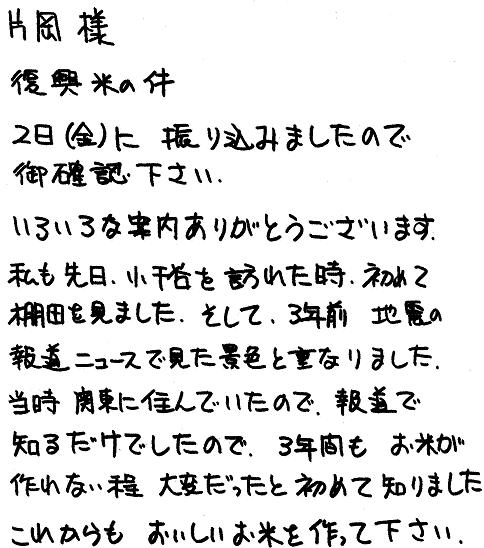 片岡様
復興米の件
2日(金)に 振り込みましたので
御確認下さい.
いろいろな案内ありがとうございます.
私も先日、小千谷を訪れた時、初めて
棚田を見ました. そして、3年前 地震の
報道ニュースで見た景色と重なりました.
当時関東に住んでいたので、報道で
知るだけでしたので、3年間も お米が
作れない程 大変だったと初めて知りました
これからも おいしいお米を作って下さい.